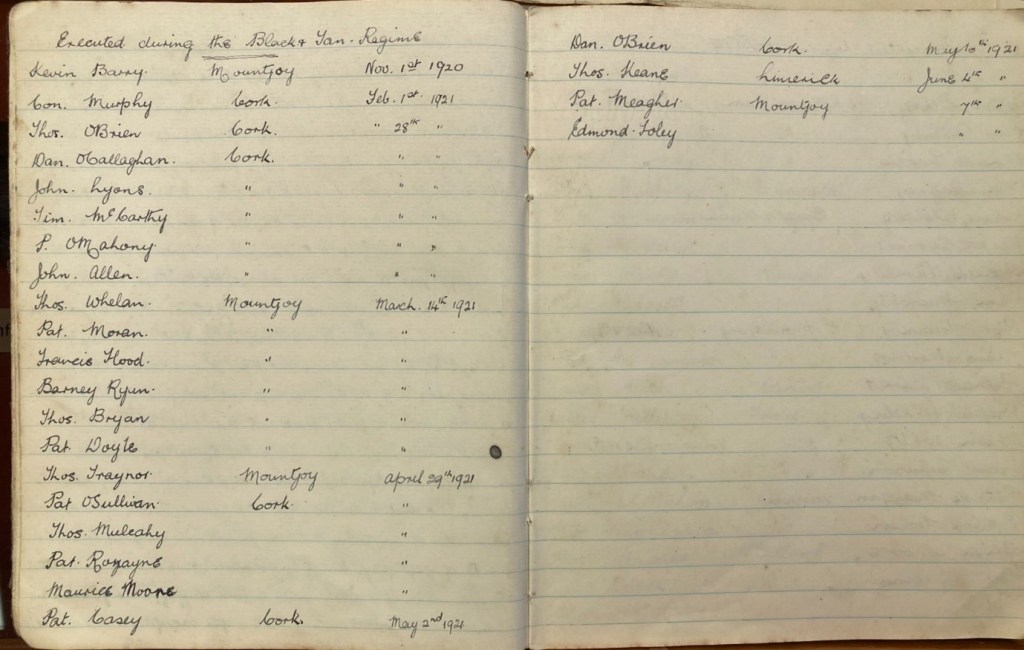 Executed during the Black & Tan. Regime
Kevin Barry. Mountjoy Nov. 1st 1920
Con. Murphy Cork. Feb. 1st. 1921
Thos. O'Brien Cork. " 28th "
Dan. O'Callaghan. Cork. " "
John. Lyons. " " "
Tim. McCarthy " " "
P. O'Mahony. " " "
John. Allen. " " "
Thos. Whelan. Mountjoy March. 14th 1921
Pat. Moran. " "
Francis Flood. " "
Barney Ryan. " "
Thos. Bryan " "
Pat. Doyle " "
Thos. Traynor. Mountjoy April 29th 1921
Pat O'Sullivan. Cork. "
Thos. Mulcahy "
Pat. Ronayne "
Maurice Moore "
Pat. Casey Cork. May 2nd 1921
Dan. O'Brien Cork. May 16th 1921
Thos. Keane Limerick June 4th "
Pat. Meagher. Mountjoy 7th "
Edmond. Foley " "